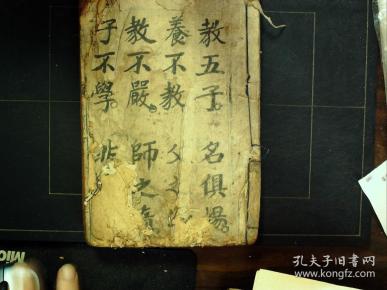 教五子。名俱揚。
養不教 父之
教不嚴。師之
子不學。非
孔夫子旧书网
www.kongfz.com